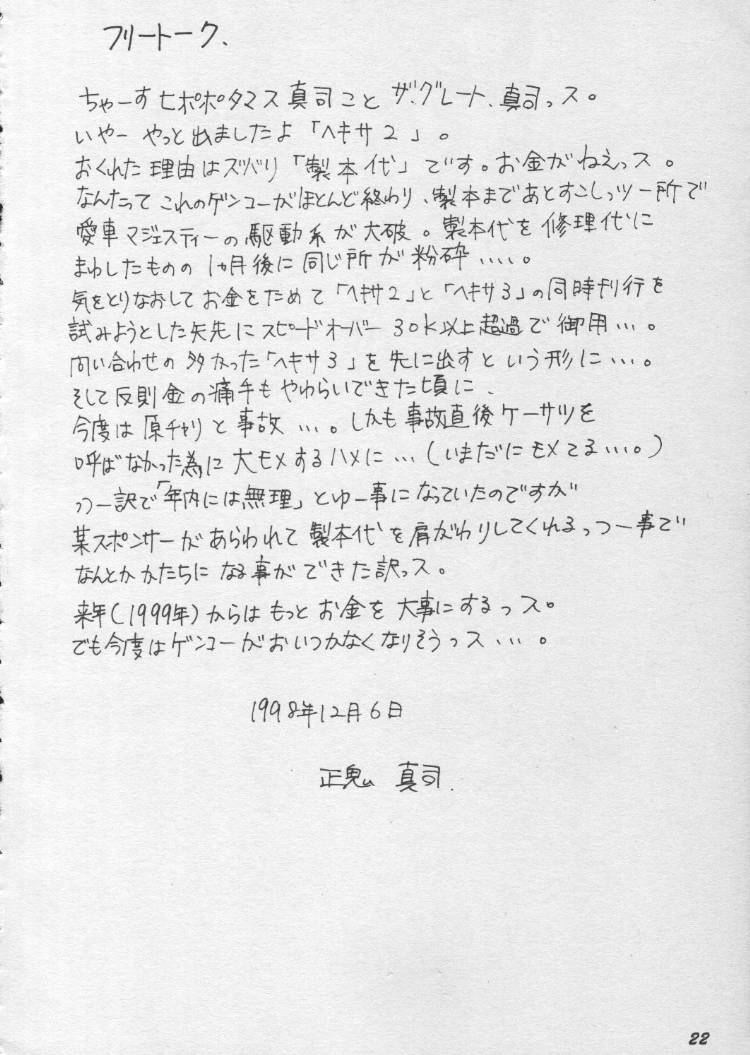 フリートーク、
ちゃーす ヒポポタマス真司こと ザ、グレート、真司っス。
いやー やっと出ましたよ「ヘキサ2」。
おくれた理由はズバリ「製本代」です。お金がねえっス。
なんたって これのゲンコーがほとんど終わり、製本まであとすこしっツー所で
愛車マジェスティーの駆動系が大破。製本代を修理代に
まわしたものの 1ヶ月後に同じ所が粉砕....。
気をとりなおしてお金をためて「ヘキサ2」と「ヘキサ3」の同時刊行を
試みようとした矢先にスピードオーバー30k以上超過で御用...。
問い合わせの多かった「ヘキサ3」を先に出すという形に...。
そして反則金の痛手もやわらいできた頃に、
今度は原チャリと事故...。しかも事故直後ケーサツを
呼ばなかった為に大モメするハメに...(いまだにモメてる...。)
っつー訳で「年内には無理」とゆー事になっていたのですが
某スポンサーがあらわれて製本代を肩がわりしてくれるっつー事で
なんとかかたちになる事ができた訳っス。
来年(1999年)からはもっとお金を大事にするっス。
でも今度はゲンコーがおいつかなくなりそうっス...。
1998年12月6日
正鬼 真司.
22